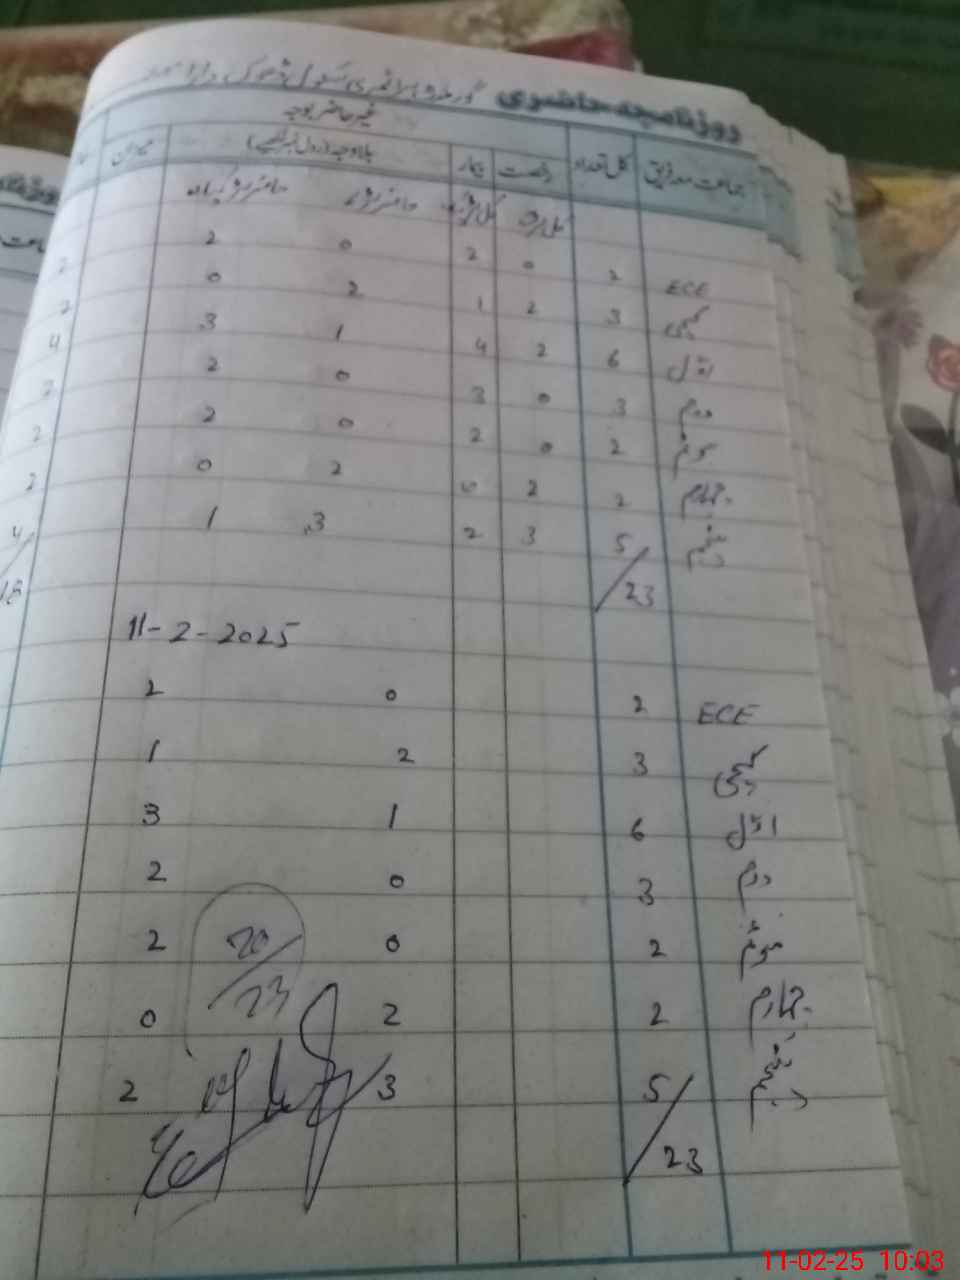 روزنامچہ حاضری گورنمنٹ پرائمری سکول ڈھوک
غیر حاضر بوجہ
جماعت معہ فریق کل تعداد رخصت بیمار بلاوجہ (رول نمبر لکھیے) میزان
حاضر بوائز حاضر گرلز
ECE 2 0 2 0 2 2
کچی 3 2 1 2 0 2
اول 6 2 4 1 3 4
دوم 3 0 3 0 2
سوئم 2 0 2 0 2 2
چہارم 2 2 0 2 0 2
پنجم 5 3 2 3 1 4
23 18
11-2-2025
ECE 2 0 2
کچی 3 2 1
اول 6 1 3
دوم 3 0 2
سوئم 2 0 2
20/23
چہارم 2 2 0
پنجم 5 3 2
23
11-02-25 10:03